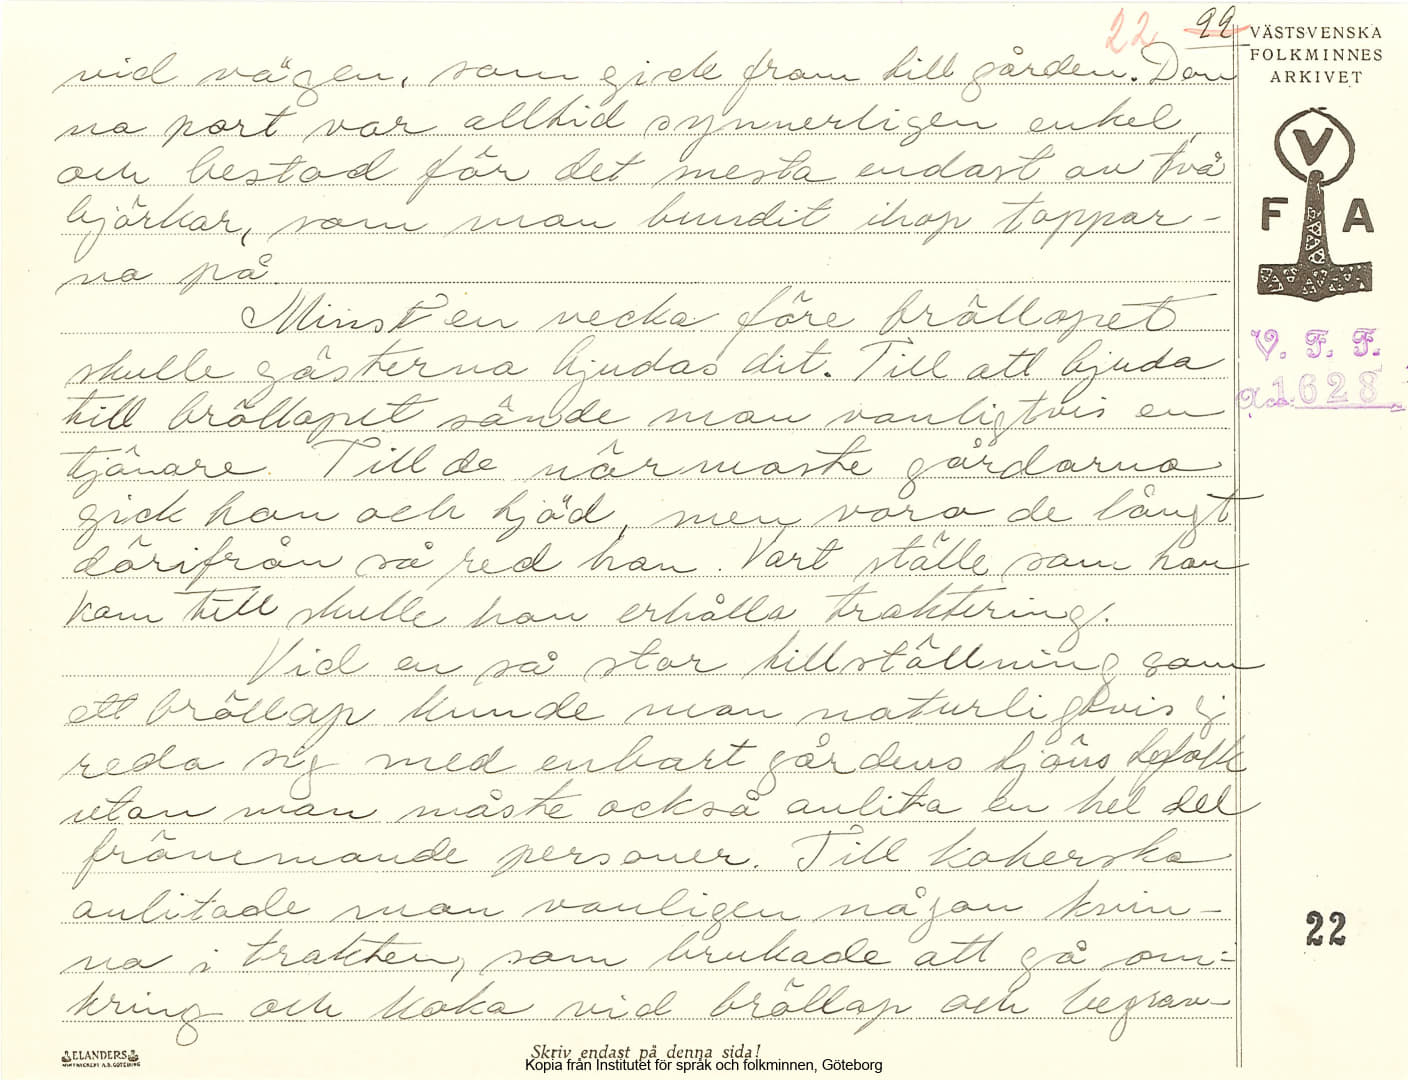 22 22
VÄSTSVENSKA
FOLKMINNES
ARKIVET
V
F A
V. F. F.
1628
vid vägen, som gick fram till gården. Den
na port var alltid synnerligen enkel
och bestod för det mesta endast av två
björkar, som man bundit ihop toppar-
na på.
Minst en vecka före bröllopet
skulle gästerna bjudas dit. Till att bjuda
till bröllopet sände man vanligtvis en
tjänare. Till de närmaste gårdarna
gick han och bjöd, men voro de långt
därifrån så red han. Vart ställe som han
kom till skulle han erhålla traktering.
Vid en så stor tillställning som
ett bröllop kunde man naturligtvis ej
reda sig med enbart gårdens tjänstefolk
utan man måste också anlita en hel del
främmande personer. Till kokerska
anlitade man vanligen någon kvin-
na i trakten, som brukade att gå om-
kring och koka vid bröllop och begrav-
22
ELANDERS
Skriv endast på denna sida!
Kopia från Institutet för språk och folkminnen, Göteborg